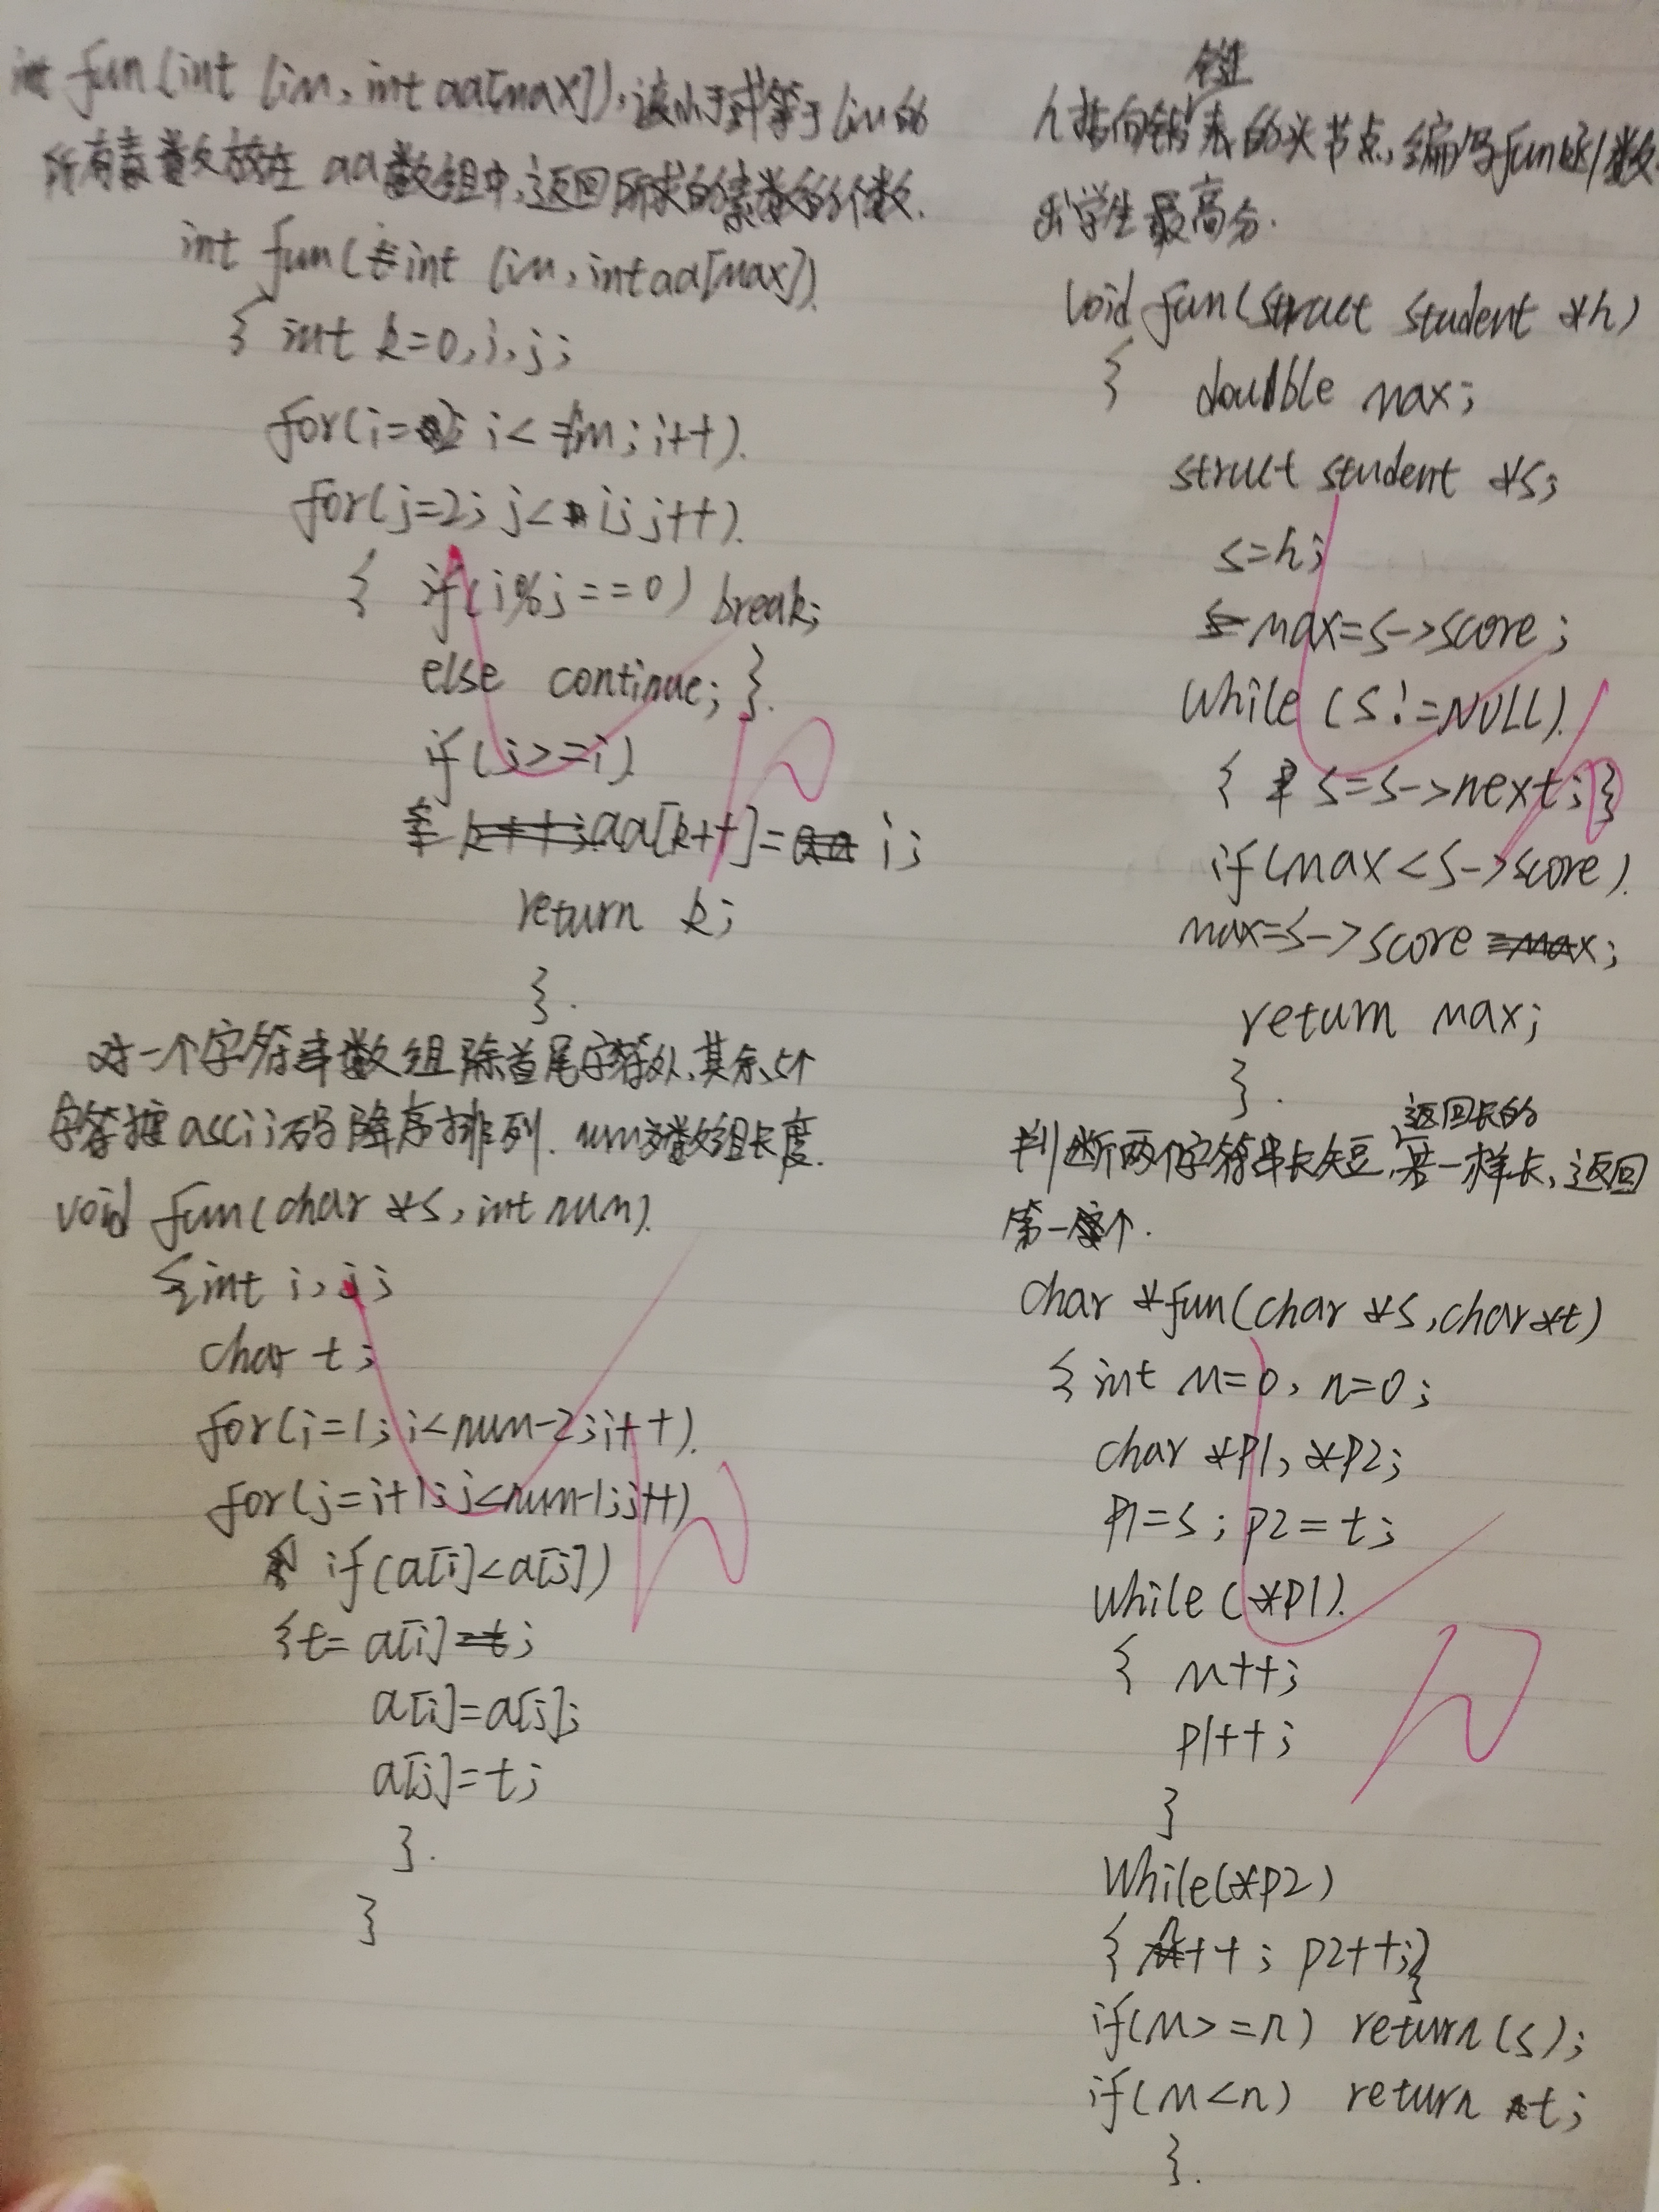 int fun(int lim, int aa[max]),该小于或等于lim的
所有素数放在aa数组中,返回所求的素数的个数.
int fun(int lim, int aa[max])
{ int k=0,i,j;
for(i=2; i<=lim; i++)
for(j=2; j<i; j++)
{ if(i%j==0) break;
else continue; }
if(j>=i)
aa[k++]=i;
return k;
}
对一个字符串数组除首尾字符外,其余5个
字符按ascii码降序排列. num为数组长度.
void fun(char *s, int num)
{int i,j;
char t;
for(i=1; i<num-2; i++)
for(j=i+1; j<num-1; j++)
if(a[i]<a[j])
{t=a[i];
a[i]=a[j];
a[j]=t;
}
}
链
h指向链表的头节点,编写fun函数
出学生最高分.
void fun(struct student *h)
{ double max;
struct student *s;
s=h;
max=s->score;
while (s!=NULL)
{ s=s->next;}
if(max<s->score)
max=s->score;
return max;
}
返回长的
判断两个字符串长短,若一样长,返回
第一个.
char *fun(char *s,char *t)
{ int m=0, n=0;
char *p1, *p2;
p1=s; p2=t;
while (*p1)
{ m++;
p1++;
}
while(*p2)
{ n++; p2++;}
if(m>=n) return(s);
if(m<n) return t;
}